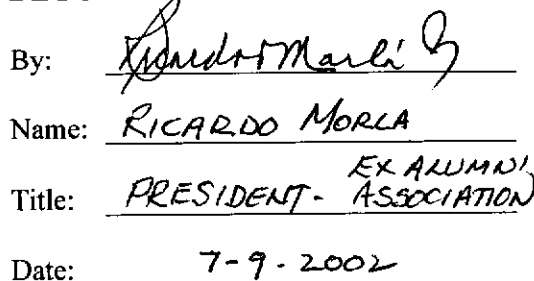 By: Ricardo
Name: RICARDO MORLA
Title: PRESIDENT- EX ALUMNI ASSOCIATION
Date: 7-9-2002